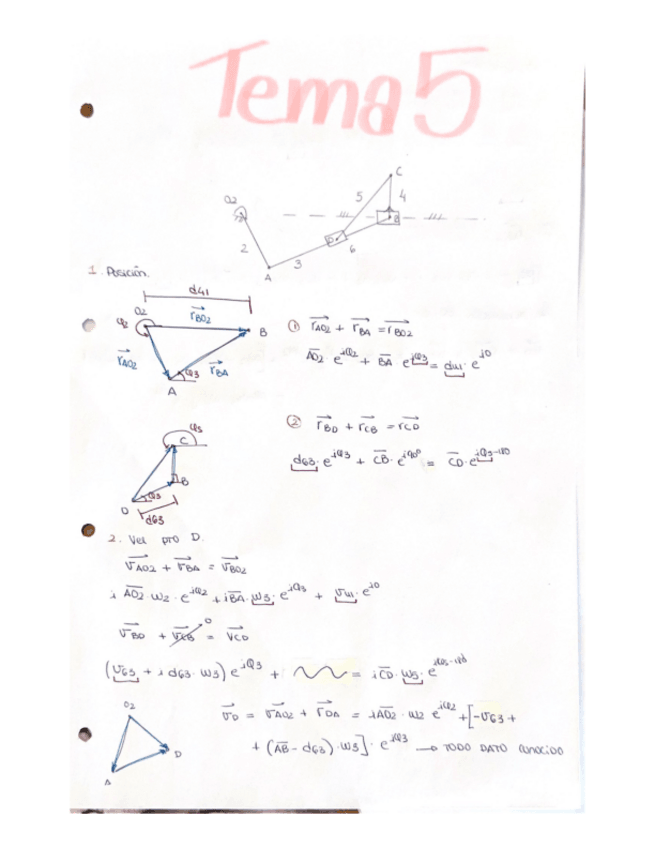 Tema 5
C
O2
5
4
B
D
2
6
3
A
1. Posición.
d41
O2
φ2
r_BO2
B
r_AO2
φ3
r_BA
A
① r_AO2 + r_BA = r_BO2
AO2 e^iφ2 + BA e^iφ3 = d41 · e^i0
φ5
C
B
D
φ3
d63
② r_BD + r_CB = r_CD
d63 · e^iφ3 + CB · e^i90° = CD · e^iφ5-180
2. Vel pto D.
v_AO2 + v_BA = v_BO2
i AO2 · ω2 · e^iφ2 + i BA · ω3 · e^iφ3 + v41 · e^i0
v_BD + v_CB 0 = v_CD
(v63 + i d63 · ω3) e^iφ3 + = i CD · ω5 · e^iφ5-180
O2
D
A
v_D = v_AO2 + v_DA = i AO2 · ω2 e^iφ2 + [-v63 +
+ (AB - d63) · ω3] · e^iφ3 → TODO DATO CONOCIDO